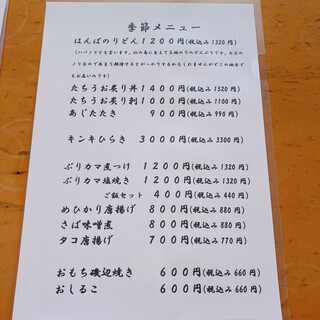 季節メニュー
はんばのりどん1200円(税込み1320円)
たちうお炙り丼1400円(税込み1520円)
たちうお炙り刺1000円(税込み1100円)
あじたたき 900円(税込み990円)
キンキひらき 3000円(税込み3300円)
ぶりカマ煮つけ 1200円(税込み1320円)
ぶりカマ塩焼き 1200円(税込み1320円)
ご飯セット 400円(税込み440円)
めひかり唐揚げ 800円(税込み880円)
さば味噌煮 800円(税込み880円)
タコ唐揚げ 700円(税込み770円)
おもち磯辺焼き 600円(税込み660円)
おしるこ 600円(税込み660円)